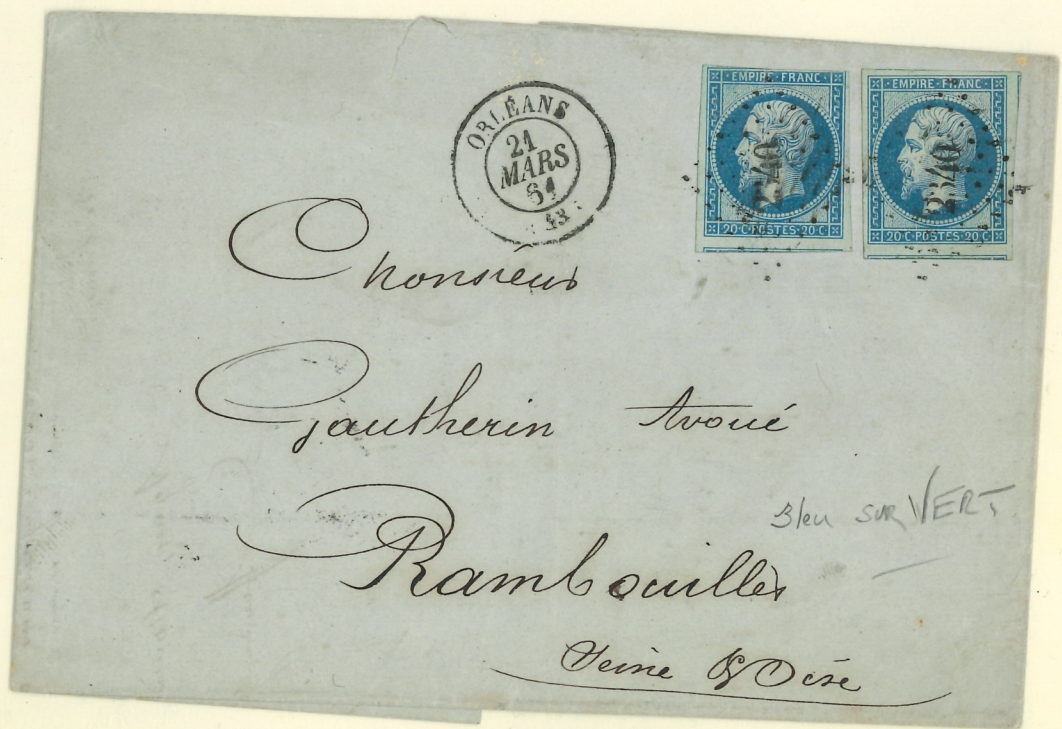 ORLÉANS
21
MARS
61
EMPIRE · FRANC ·
20 C · POSTES · 20 C ·
2340
EMPIRE · FRANC ·
20 C · POSTES · 20 C ·
2340
Monsieur
Gautherin Avoué
Bleu SUR VERT
Rambouillet
Seine & Oise